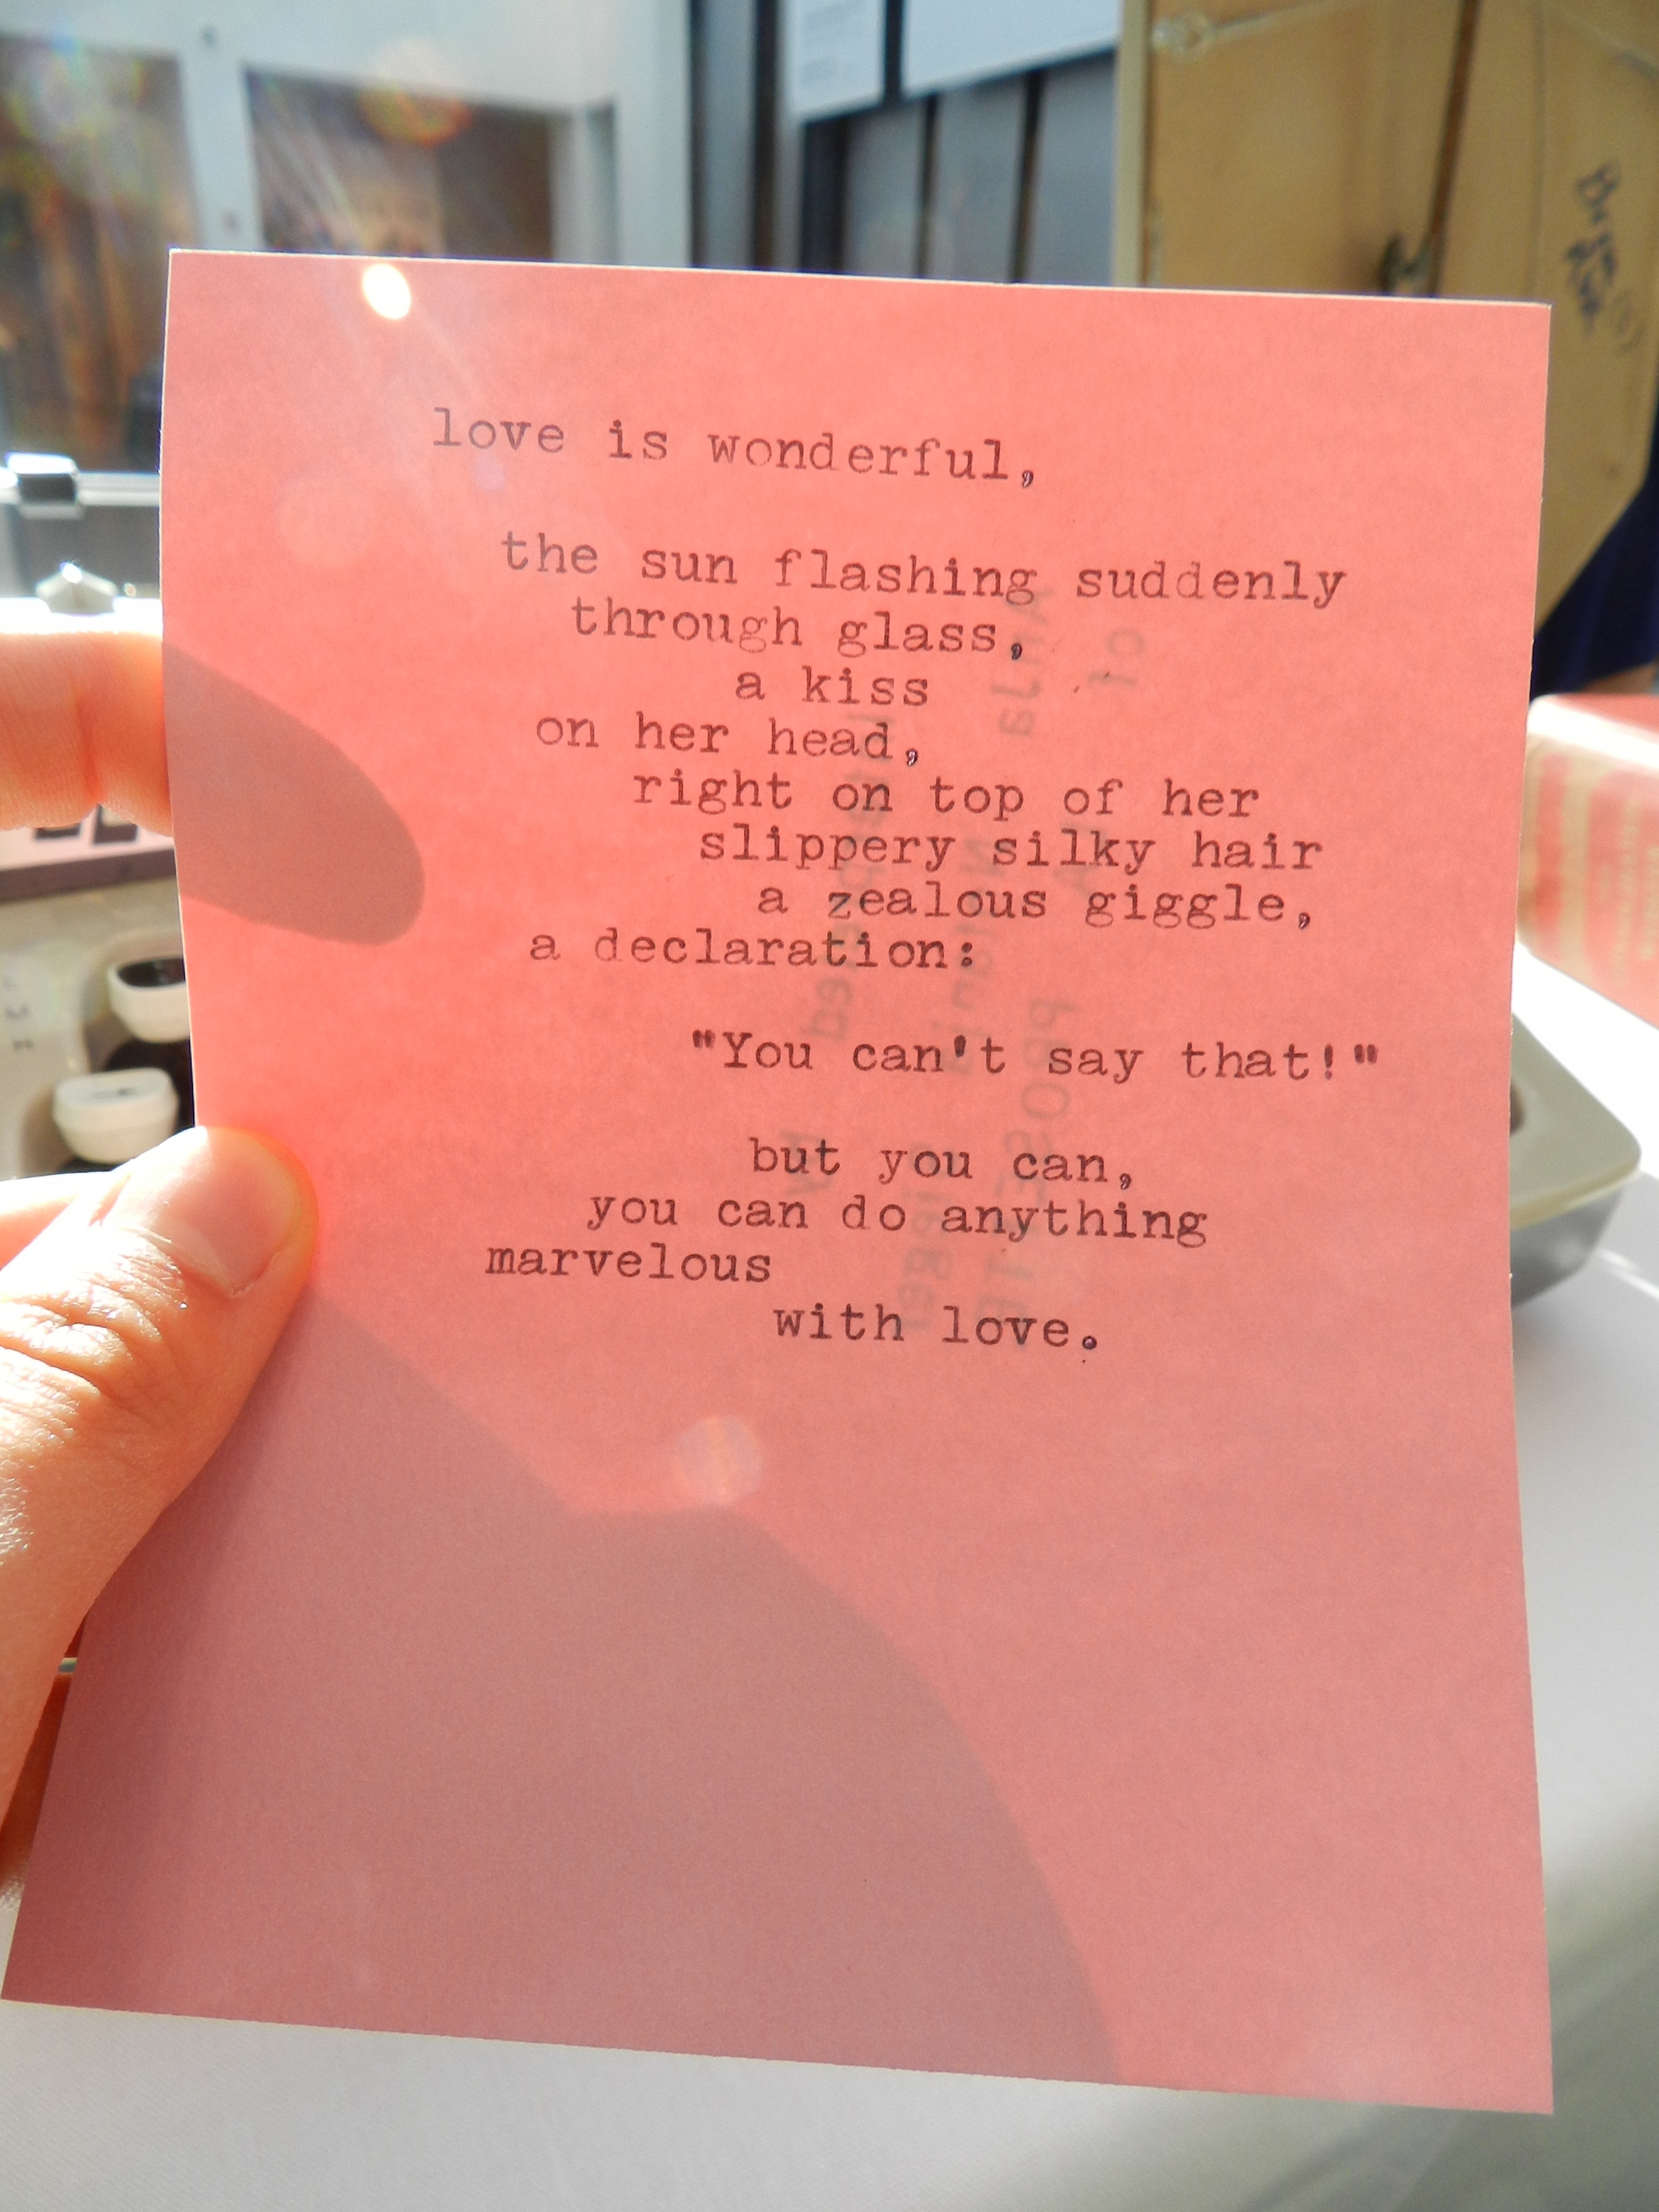 love is wonderful,
the sun flashing suddenly
through glass,
a kiss
on her head,
right on top of her
slippery silky hair
a zealous giggle,
a declaration:
"You can't say that!"
but you can,
you can do anything
marvelous
with love.